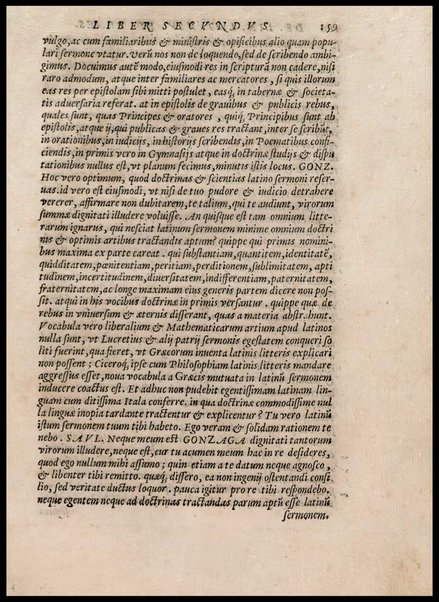 LIBER SECVNDVS. 159
vulgo, ac cum familiaribus & ministris & opificibus alio quam popu-
lari sermone vtatur. Verū nos non de loquendo, sed de scribendo ambi-
gimus. Docuimus autē modo, eiusmodi res in scripturā non cadere, nisi
raro admodum, atque inter familiares ac mercatores, si quis illorum
eas res per epistolam sibi mitti postulet, easq́; in tabernæ & societa-
tis aduersaria referat. at in epistolis de grauibus & publicis rebus,
quales sunt, quas Principes & oratores, quiq́; Principibus sunt ab
epistolis, atque ij, qui publicas & graues res tractant, inter se scribūt,
in orationibus, in iudicijs, in historijs scribendis, in Poematibus confi-
ciendis, in primis vero in Gymnasijs atque in doctrinæ studijs & dispu
tationibus nullus est, vt planum fecimus, minutis istis locus. GONZ.
Hoc vero optimum, quod doctrinas & scientias latino sermoni reser-
uas. id vero est eiusmodi, vt nisi de tuo pudore & iudicio detrahere
vererer, affirmare non dubitarem, te talium, qui te audiunt, virorum
summæ dignitati illudere voluisse. An quisque est tam omnium litte-
rarum ignarus, qui nesciat latinum sermonem minime omnium doctri
nis & optimis artibus tractandis aptum? quippe qui primis nomini-
bus maxima ex parte careat. qui substantiam, quantitem, identitatē,
quidditatem, pænitentiam, peritiam, perditionem, sublimitatem, apti
tudinem, incertitudinem, diuersitatem, indifferentiam, paternitatem,
fraternitatem, ac longe maximam eius generis partem dicere non pos-
sit. atqui in his vocibus doctrinæ in primis versantur. quippe quæ de
rebus in vniuersum & æternis disserant, quas a materia abstrahunt.
Vocabula vero liberalium & Mathematicarum artium apud latinos
nulla sunt, vt Lucretius & alij patrij sermonis egestatem conqueri so
liti fuerint, qua fieret, vt Græcorum inuenta latinis litteris explicari
non possent; Ciceroq́; ipse cum Philosophiam latinis litteris mandare
aggressus esset, noua vocabula a Græcis mutuata in latinū sermonem
inducere coactus est. Et adhuc non pudebit egentissimam latinam lin-
guam cum ditissima Itala conferre. in qua doctrinæ commodissime nul
la linguæ inopia tardante tractentur & explicentur? Tu vero latinū
istum sermonem tuum tibi habeto. Ego veram & solidam rationem te
nebo. SAVL. Neque meum est GONZAGA dignitati tantorum
virorum illudere, neque est, cur tu acumen meum hac in re desideres,
quod ego nullum mihi assumo; quin etiam a te datum neque agnosco,
& libenter tibi remitto. quæq́; dissero, ea non ingenij ostentandi consi-
lio, sed veritate ductus loquor. pauca igitur pro re tibi respondebo.
neque egentem neque ad doctrinas tractandas parum aptū esse latinū
sermonem.